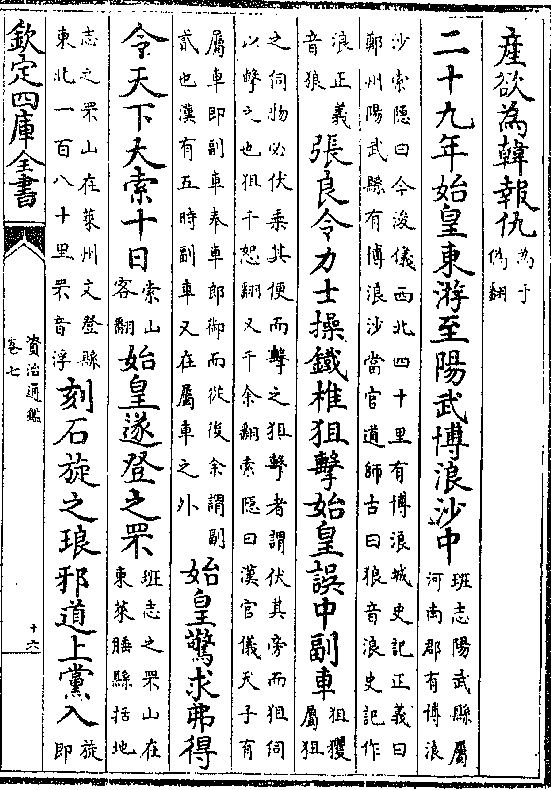 産欲為韓報仇為于偽翻
二十九年始皇東游至陽武博浪沙中班志陽武縣屬河南郡有博浪
沙索隱曰今浚儀西北四十里有博浪城史記正義曰鄭州陽武縣有博浪沙當官道師古曰狼音浪史記作
浪正義音狼張良令力士操鐵椎狙擊始皇誤中副車狙玃屬狙
之伺物必伏乗其便而擊之狙擊者謂伏其旁而狙伺以擊之也狙千恕翻又千余翻索隱曰漢官儀天子有
屬車即副車奉車郎御而從後余謂副貳也漢有五時副車又在屬車之外始皇驚求弗得
令天下大索十日索山客翻始皇遂登之罘班志之罘山在東萊腄縣括地
志之罘山在萊州文登縣東北一百八十里罘音浮刻石旋之琅邪道上黨入旋即
欽定四庫全書
資治通鑑
卷七
十六